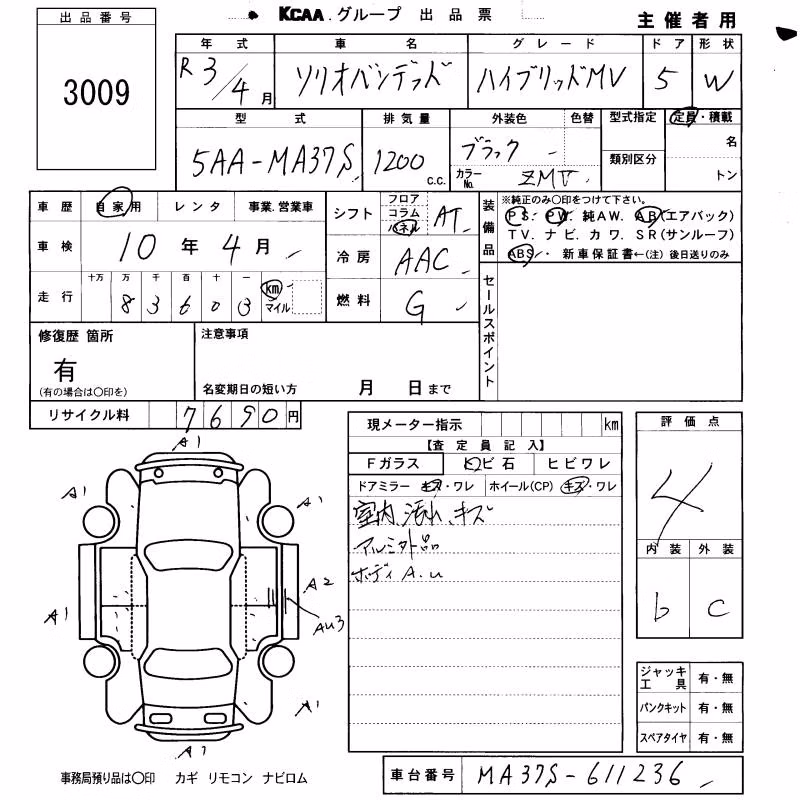 出品番号
KCAA.グループ 出品票
主催者用
3009
年式 車名 グレード ドア 形状
R3/4月 ソリオバンディット ハイブリッドMV 5 W
型式 排気量 外装色 色替 型式指定 定員・積載
5AA-MA37S 1200 c.c. ブラック 名
カラーNo. 類別区分 トン
車歴 自家用 レンタ 事業.営業車
シフト フロア コラム パネル AT
車検 10年4月
冷房 AAC
走行 十万 万 千 百 十 一
83600 km マイル
燃料 G
装備品
※純正のみ○印をつけて下さい。
PS. PW. 純AW. AB(エアバック)
TV. ナビ. カワ. SR(サンルーフ)
ABS/・ 新車保証書←(注) 後日送りのみ
セールスポイント
修復歴 箇所 注意事項
有
(有の場合は○印を) 名変期日の短い方 月 日まで
リサイクル料 7690円
現メーター指示 km
評価点
【査定員記入】
Fガラス トビ石 ヒビワレ
ドアミラー キズ・ワレ ホイール(CP) キズ・ワレ
室内、汚れ、キズ
アルミ外品
ボディA.u
4
内装 外装
b c
A1
A1 A1
A2
A1 AU3
A1
A1
ジャッキ工具 有・無
パンクキット 有・無
スペアタイヤ 有・無
事務局預り品は○印 カギ リモコン ナビロム
車台番号 MA37S-611236